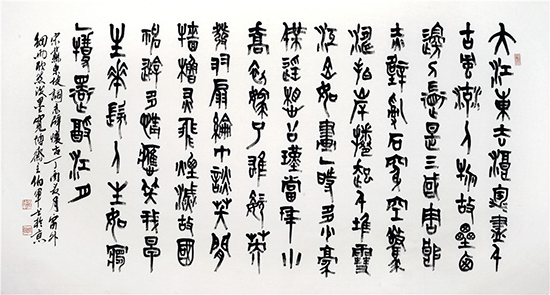 大江東去浪淘盡千
古風流人物故壘西
邊人道是三國周郎
赤壁亂石穿空驚
濤拍岸捲起千堆雪
江山如畫一時多少豪
傑遙想公瑾當年小
喬初嫁了雄姿英
發羽扇綸巾談笑間
檣櫓灰飛煙滅故國
神遊多情應笑我早
生華髮人生如夢
一尊還酹江月
宋蘇東坡詞赤壁懷古夏月窗外
細雨欣然漫墨寬博齋主伯軍書於京